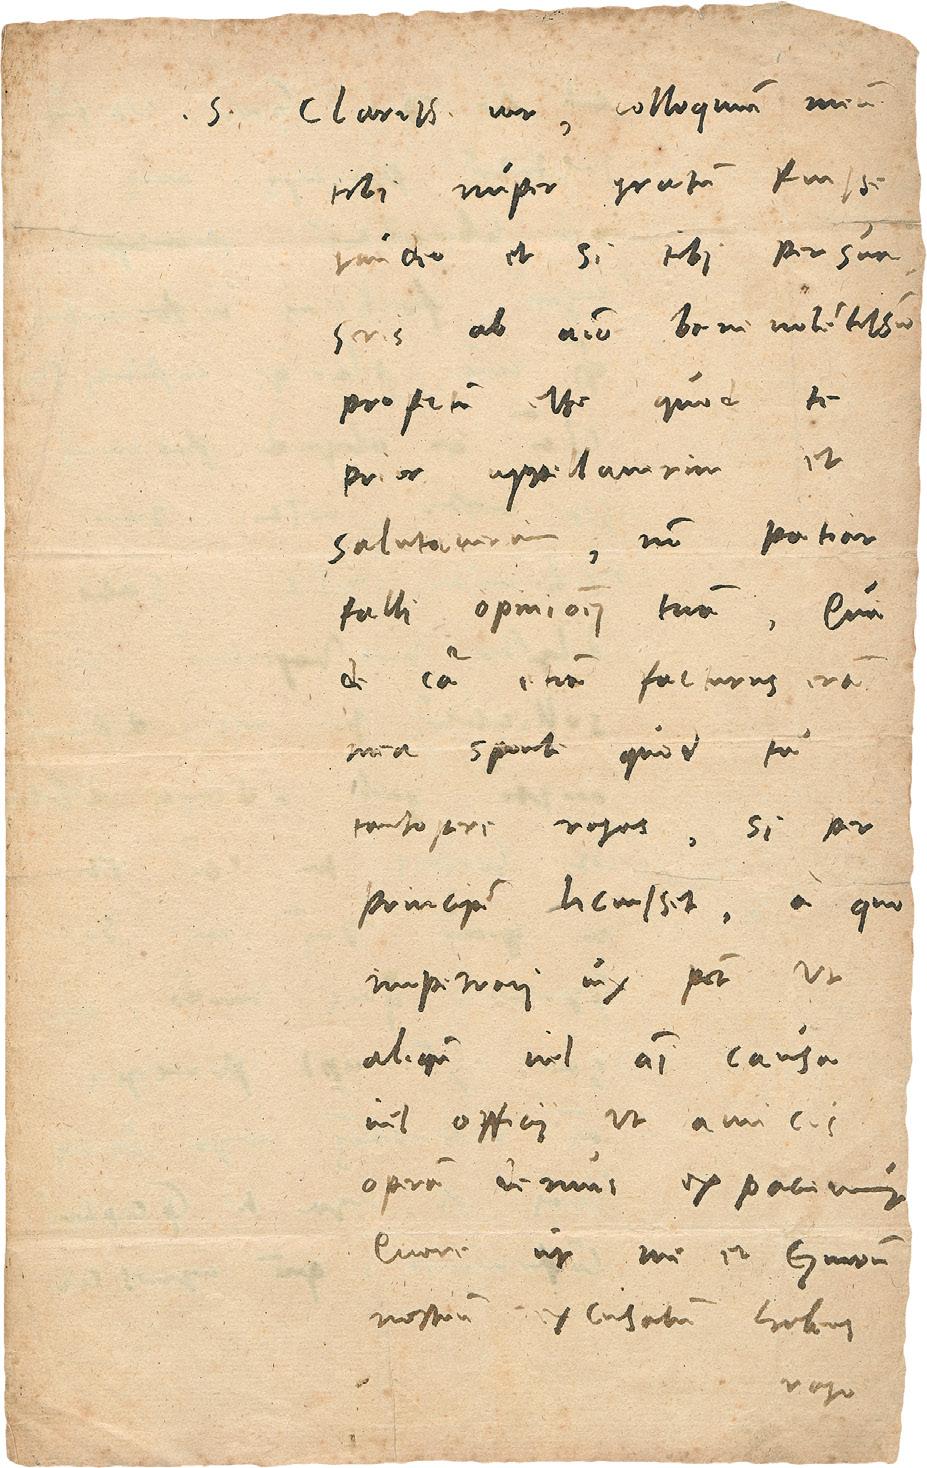 .S. Clariss. vir, colloquiū meū
tibi nuper gratū fuisse
gaudeo et si tibi persua
seris ab aīo benevolētissō
profectū esse quod te
prior appellaverim et
salutaverim, nō patiar
falli opinionē tuā, Qua
de cā etiā facturus erā
mea sponte quod tu
tantopere rogas, si per
principē licuisset, a quo
impetrari vix pōt ut
aliquā vel aī causa
vel officij ut amicis
operā demus
Quare ut me et
nostrū excusatū habeas
rogo